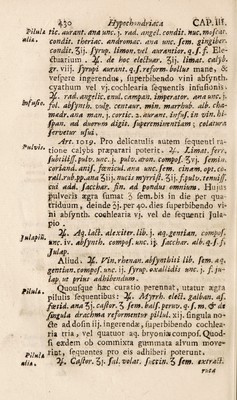 430 Hypochondriaca CAP. III.
Pilula tic. aurant. ana unc. j. rad. angel. condit. nuc. moscat.
alia. condit. theriac. andromac. ana unc. sem. gingiber.
condit. ʒij. syrup. limon. vel aurantior. q. s. f. Ele-
ctuarium. ℞. de hoc electuar. ʒij. limat. calyb.
gr. viij. syrupi aurant. q. s. reform. bolus mane, &
vespere ingerendus, superbibendo vini absynth.
cyathum vel vj. coochlearia sequentis infusionis.
℞. rad. angelic. enul. campan. imperator. ana unc. j.
Infusio. fol. absynth. vulg. centaur. min. marrhub. alb. cha-
madr. ana man. j. cortic. 2. aurant. infus. in vin. hi-
span. ad duorum digit. supereminentiam; colatura
servetur usui.
Pulvis. Art. 1019. Pro delicatulis autem sequenti ra-
tione calybs præparari poterit. ℞. Limat. ferr.
subtiliss. pulv. unc. j. pulv. aron. compos. ʒvj. semin.
coriand. anis. fœnicul. ana unc. sem. cinam. opt. co-
rall. rub. pp. ana ʒiij. nucis myrist. ʒij. spulv. tenuiss.
cui add. sacchar. fin. ad pondus omnium. Hujus
pulveris ægra sumat ʒ sem. bis in die per qua-
triduum, deinde ʒj. per 40. dies superbibendo vi-
ni absynth. coohlearia vj. vel de sequenti Jula-
pio.
Julapiũ. ℞. Aq. lact. alexiter. lib. j. aq. gentian. compos.
unc. iv. absynth. compos. unc. ij. sacchar. alb. q. s. f.
Julap.
Aliud. ℞. Vin. rhenan. absynthiti lib. sem. aq.
gentian. compos. unc. ij. syrup. oxalidis unc. j. f. ju-
lap. ut prius adhibendum.
Pilula. Quousque hæc curatio perennat, utatur ægra
pilulis sequentibus: ℞. Myrrh. elect. galban. as.
fœtid. ana ʒj. castor. ʒ sem. bals. peruv. q. s. m. & de
singula drachma reformentur pillul. xij. singula no-
cte ad dosin iij. ingerendæ, superbibendo cochlea-
ria tria, vel quatuor aq. bryoniæ compos. Quod-
si exdem ob commixta gummata alvum move-
Pilula rint, sequentes pro eis adhiberi poterunt.
alia ℞. Castor. ʒj. sal. volat. succin. ʒ sem. extract.
ruta